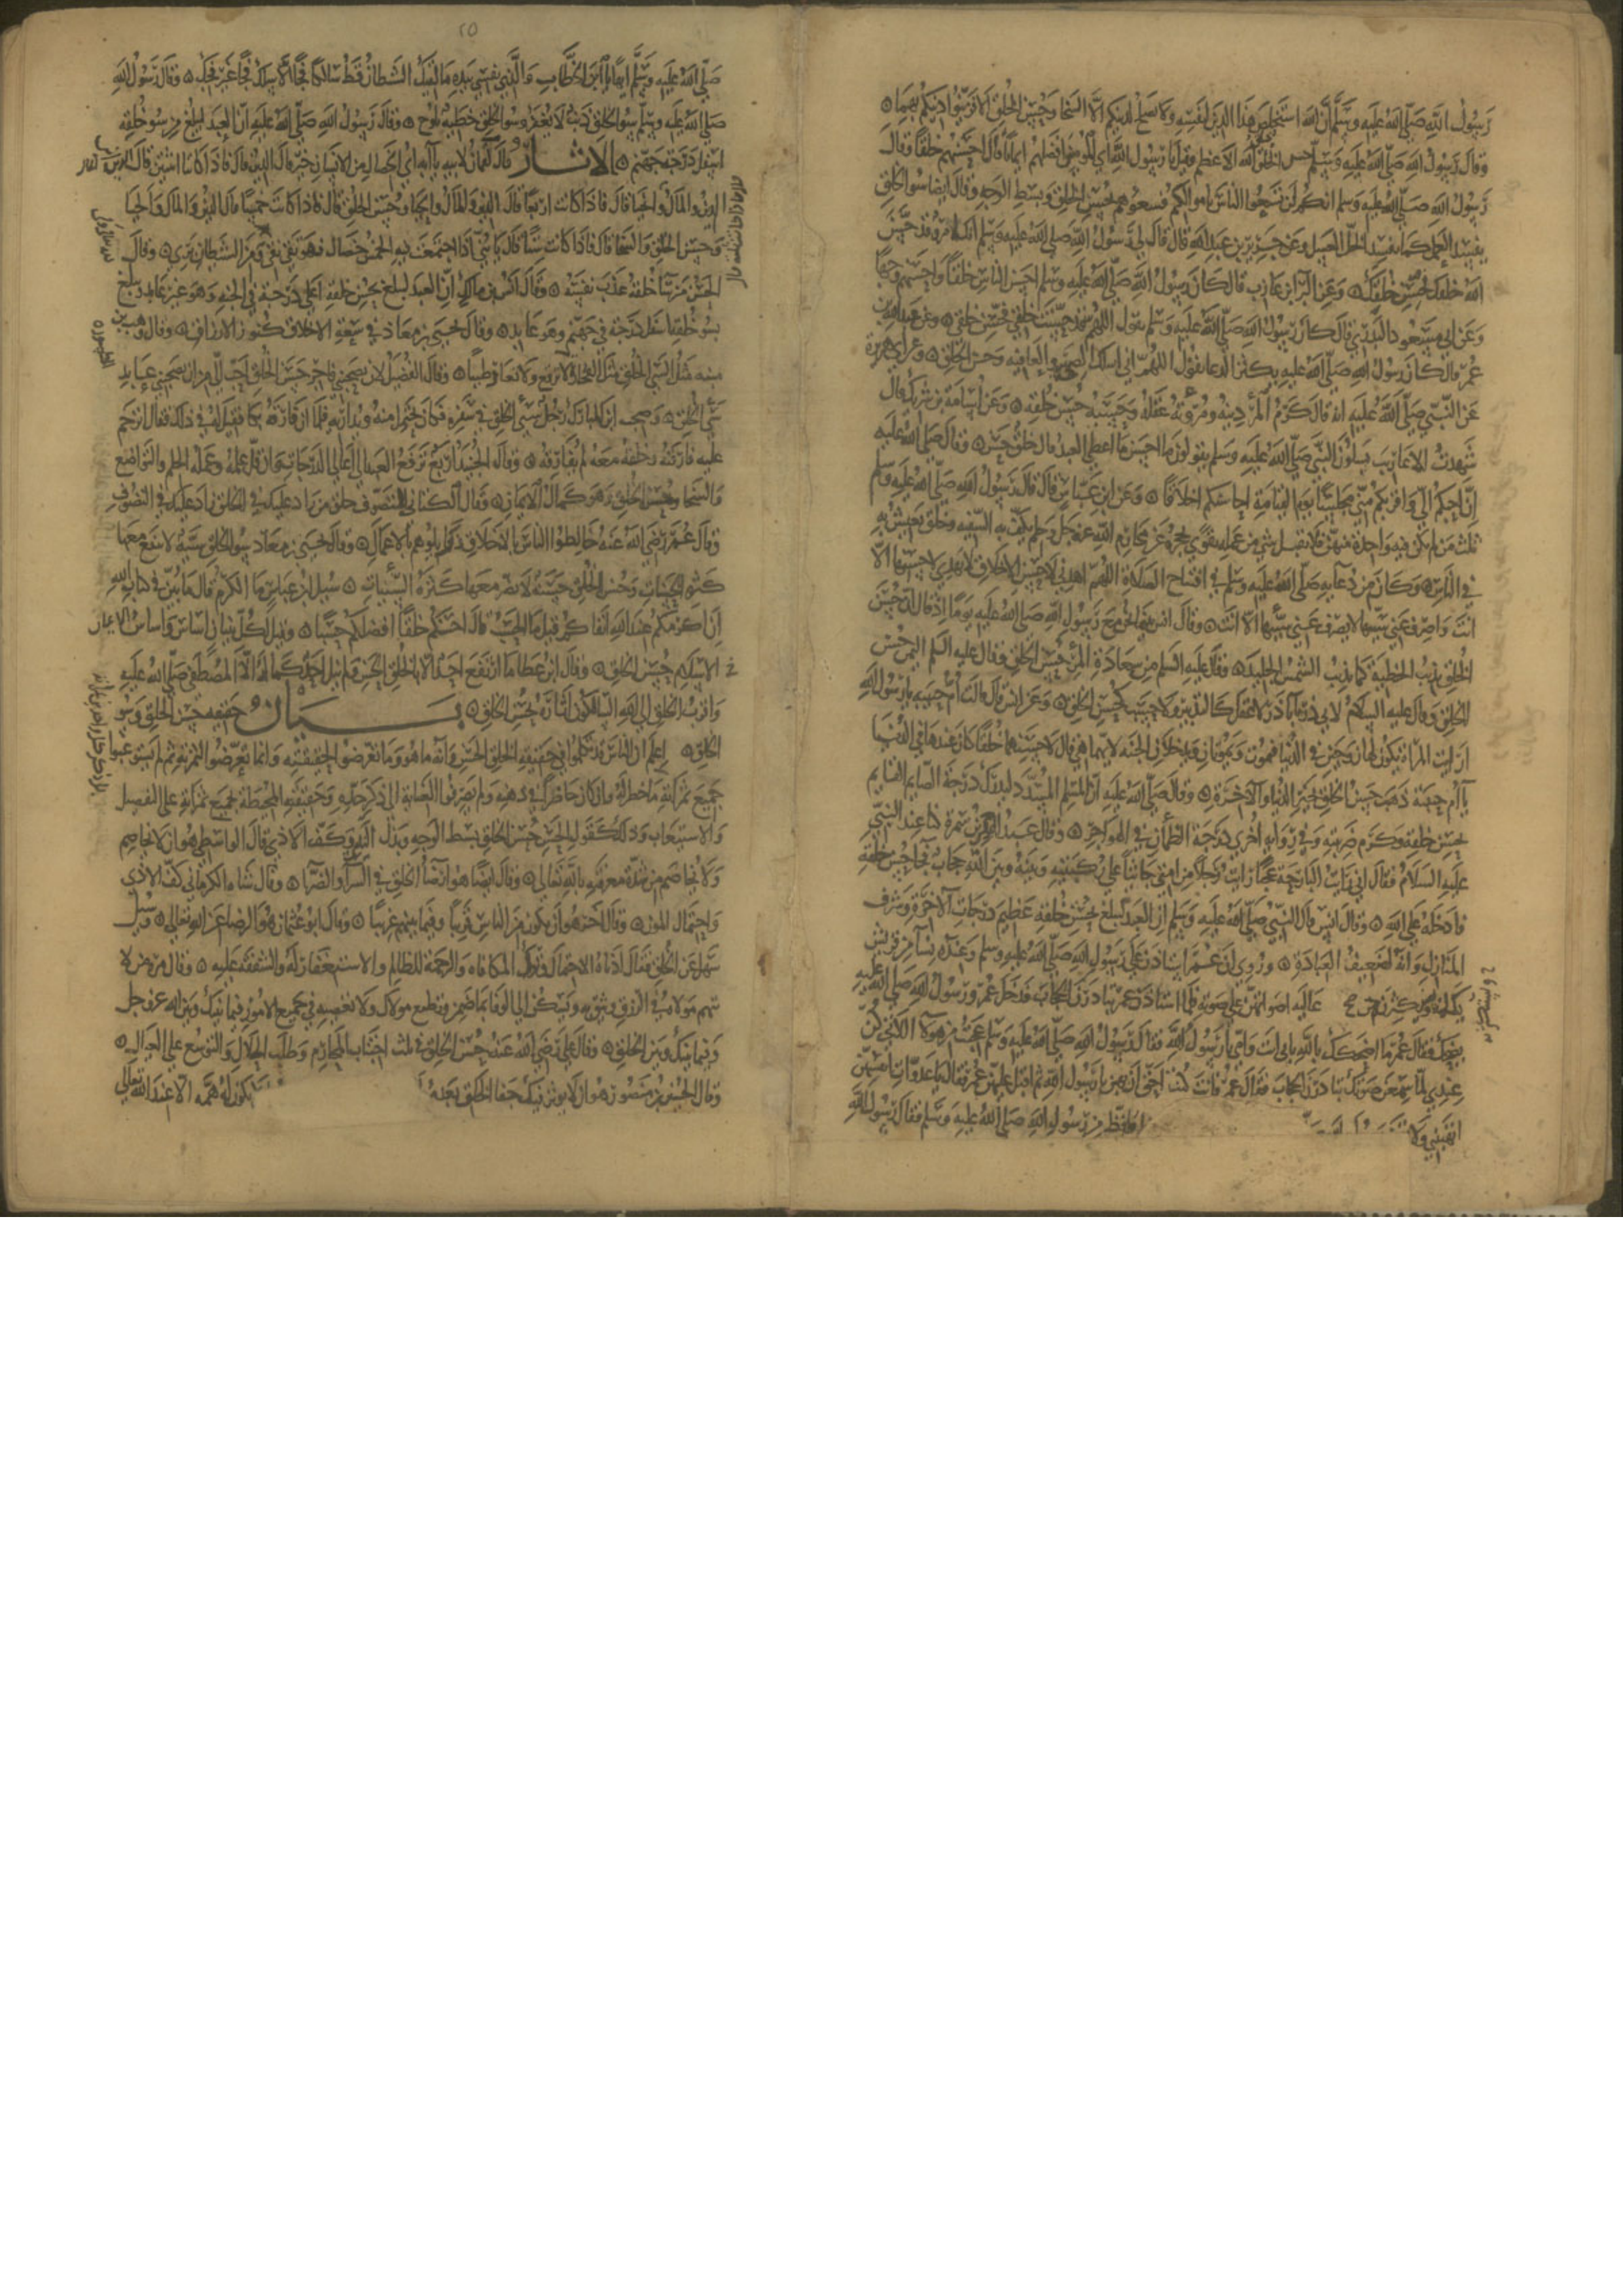 رسول الله صلى الله عليه وسلم ان الله استخلص هذا الدين لنفسه ولا يصلح لدينكم الا السخا وحسن الخلق الا فزينوا دينكم بهما
وقال رسول الله صلى الله عليه وسلم حسن الخلق خلق الله الاعظم وقيل يا رسول الله اي المومنين افضلهم ايمانا قال احسنهم خلقا وقال
رسول الله صلى الله عليه وسلم انكم لن تسعوا الناس باموالكم فسعوهم بحسن الخلق وبسط الوجه وقال ايضا سو الخلق
يفسد العمل كما يفسد الخل العسل وعن جرير بن عبد الله قال قال لي رسول الله صلى الله عليه وسلم انك امرو قد حسن
الله خلقك فحسن خلقك وعن البرا بن عازب قال كان رسول الله صلى الله عليه وسلم احسن الناس خلقا واحسنهم وجها
وعن ابي مسعود البدري قال كان رسول الله صلى الله عليه وسلم يقول اللهم حسنت خلقي فحسن خلقي وعن عبد الله بن
عمر قال كان رسول الله صلى الله عليه يكثر الدعا يقول اللهم اني اسلك الصحة والعافية وحسن الخلق وعن ابي هريرة
عن النبي صلى الله عليه انه قال كرم المر دينه ومروته عقله وحسبه حسن خلقه وعن اسامة بن شريك قال
شهدت الاعاريب يسلون النبي صلى الله عليه وسلم يقولون ما احسن ما اعطي العبد قال خلق حسن وقال صلى الله عليه
ان احبكم الي واقربكم مني مجلسا يوم القيامة احاسنكم اخلاقا وعن ابن عباس قال قال رسول الله صلى الله عليه وسلم
ثلث من لم تكن فيه واحدة منهن فلا تعتد بشي من عمله تقوى تحجزه عن محارم الله عز وجل وحلم يكف به السفيه وخلق يعيش به
في الناس وكان من دعايه صلى الله عليه وسلم في افتتاح الصلاة اللهم اهدني لاحسن الاخلاق لا يهدي لاحسنها الا
انت واصرف عني سيئها لا يصرف عني سيئها الا انت وقال انس بينما نحن مع رسول الله صلى الله عليه يوما اذ قال ان حسن
الخلق يذيب الخطية كما تذيب الشمس الجليد وقال عليه السلم من سعادة المر حسن الخلق وقال عليه السلم اليمن حسن
الخلق وقال عليه السلام لابي ذر يا ابا ذر لا عقل كالتدبير ولا حسب كحسن الخلق وعن انس قال قالت ام حبيبة يا رسول الله
ارايت المراة يكون لها زوجين في الدنيا فتموت ويموتان ويدخلون الجنة لايهما هي قال لاحسنهما خلقا كان عندها في الدنيا
يا ام حبيبة ذهب حسن الخلق بخير الدنيا والاخرة وقال صلى الله عليه ان المسلم المسدد ليدرك درجة الصايم القايم
بحسن خلقه وكرم ضريبته وفي رواية اخرى درجة الظمان في الهواجر وقال عبد الرحمن بن سمرة كنا عند النبي
عليه السلام فقال اني رايت البارحة عجبا رايت رجلا من امتي جاثيا على ركبتيه وبينه وبين الله حجاب فجا حسن خلقه
فادخله على الله وقال انس قال النبي صلى الله عليه وسلم ان العبد ليبلغ بحسن خلقه عظيم درجات الاخرة وشرف
المنازل وانه لضعيف العبادة وروي ان عمر استاذن على رسول الله صلى الله عليه وسلم وعنده نسا من قريش
يكلمنه ويستكثرنه عالية اصواتهن على صوته فلما استاذن عمر تبادرن الحجاب فدخل عمر ورسول الله صلى الله عليه
يضحك فقال عمر ما اضحكك بالله بابي انت وامي يا رسول الله فقال رسول الله صلى الله عليه وسلم عجبت من هولا اللاتي كن
عندي لما سمعن صوتك تبادرن الحجاب فقال عمر فانت كنت احق ان يهبن يا رسول الله ثم اقبل عليهن عمر فقال يا عدوات انفسهن
اتهبنني ولا افظ من رسول الله صلى الله عليه وسلم فقال رسول الله
صلى الله عليه وسلم ايها يا ابن الخطاب والذي نفسي بيده ما لقيك الشيطان قط سالكا فجا الا سلك فجا غير فجك وقال رسول الله
صلى الله عليه وسلم سو الخلق ذنب لا يغفر وسو الخلق خطية تلوح وقال رسول الله صلى الله عليه ان العبد ليبلغ من سو خلقه
اسفل درجة جهنم الاثار قال لقمان لابيه يا ابه اي الخصال من الانسان خير قال الدين قال فاذا كانتا اثنتين قال
الدين والمال والحيا قال فاذا كانت اربعا قال الدين والمال والحيا وحسن الخلق قال فاذا كانت خمسا قال الدين والمال والحيا
وحسن الخلق والسخا قال فاذا كانت ستا قال يا بني اذا اجتمعت فيه الخمس خصال فهو تقي نقي ومن الشيطان بري وقال
الحسن من سا خلقه عذب نفسه وقال انس بن مالك ان العبد ليبلغ بحسن خلقه اعلى درجة في الجنة وهو غير عابد ويبلغ
بسو خلقه اسفل درجة في جهنم وهو عابد وقال يحيى بن معاذ في سعة الاخلاق كنوز الارزاق وقال وهب بن
منبه مثل السي الخلق مثل الفخارة لا ترقع ولا تعاد طينا وقال الفضيل لان يصحبني فاجر حسن الخلق احب الي من ان يصحبني عابد
سي الخلق وصحب ابن المبارك رجل سي الخلق في سفره فكان يحتمل منه ويداريه فلما ان فارقه بكا فقيل له في ذلك فقال ارحم
عليه فارقته وخلقه معه لم يفارقه وقال الجنيد اربع ترفع العبد الى اعلى الدرجات وان قل عمله وعلمه الحلم والتواضع
والسخا وحسن الخلق وهو كمال الايمان وقال الكتاني التصوف خلق من زاد عليك في الخلق زاد عليك في التصوف
وقال عمر رضي الله عنه خالطوا الناس بالاخلاق وزايلوهم بالاعمال وقال يحيى بن معاذ سو الخلق سية لا تنفع معها
كثرة الحسنات وحسن الخلق حسنة لا تضر معها كثرة السيئات سيل ابن عباس ما الكرم قال ما بين في كتاب الله
ان اكرمكم عند الله اتقاكم قيل فما الحسب قال احسنكم خلقا افضلكم حسبا وقيل لكل بنيان اساس واساس
الاسلام حسن الخلق وقال ابن عطا ما ارتفع احد الا بالخلق الحسن ولم ينل احد كماله الا المصطفى صلى الله عليه
واقرب الخلق الى الله السالكون اثاره بحسن الخلق بيان حقيقة حسن الخلق وسو
الخلق اعلم ان الناس قد تكلموا في حقيقة الخلق الحسن وانه ما هو وما تعرضوا لحقيقته وانما تعرضوا لثمرته ثم لم يستوعبوا
جميع ثمراته بل ذكر كل واحد من ثمراته ما خطر له وما كان حاضرا في ذهنه ولم يصرفوا العناية الى ذكر حده وحقيقته المحيطة بجميع ثمراته على التفصيل
والاستيعاب وذلك كقول الحسن حسن الخلق بسط الوجه وبذل الندى وكف الاذى قال الواسطي هو ان لا يخاصم
ولا يخاصم من شدة معرفته بالله تعالى وقال ايضا هو ارضا الخلق في السرا والضرا وقال شاه الكرماني كف الاذى
واحتمال المون وقال اخر هو ان يكون من الناس قريبا وفيما بينهم غريبا وقال ابو عثمان هو الرضا عن الله تعالى وسيل
سهل عن الخلق فقال ادناه الاحتمال وترك المكافاة والرحمة للظالم والاستغفار له والشفقة عليه وقال مرة ان لا
يتهم مولاه في الرزق ويثق به ويسكن الى الوفا بما ضمن ولا تعصيه في جميع الامور فيما بينك وبين الله عز وجل
وفيما بينك وبين الخلق وقال علي رضي الله عنه حسن الخلق في ثلث اجتناب المحارم وطلب الحلال والتوسع على العيال
وقال الحسين بن منصور هو ان لا يوثر فيك جفا الخلق بعد يكون له همة الا عند الله تعالى